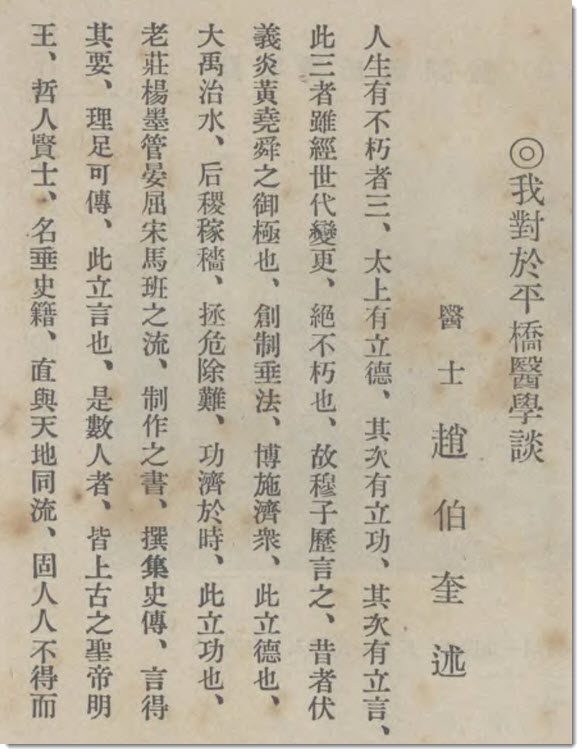 ◎我對於平橋醫學談
醫士趙伯奎述
人生有不朽者三、太上有立德、其次有立功、其次有立言、
此三者雖經世代變更、絕不朽也、故穆子歷言之、昔者伏
義炎黃堯舜之御極也、創制垂法、博施濟衆、此立德也、
大禹治水、后稷稼穡、拯危除難、功濟於時、此立功也、
老莊楊墨管晏屈宋馬班之流、制作之書、撰集史傳、言得
其要、理足可傳、此立言也、是數人者、皆上古之聖帝明
王、哲人賢士、名垂史籍、直與天地同流、固人人不得而